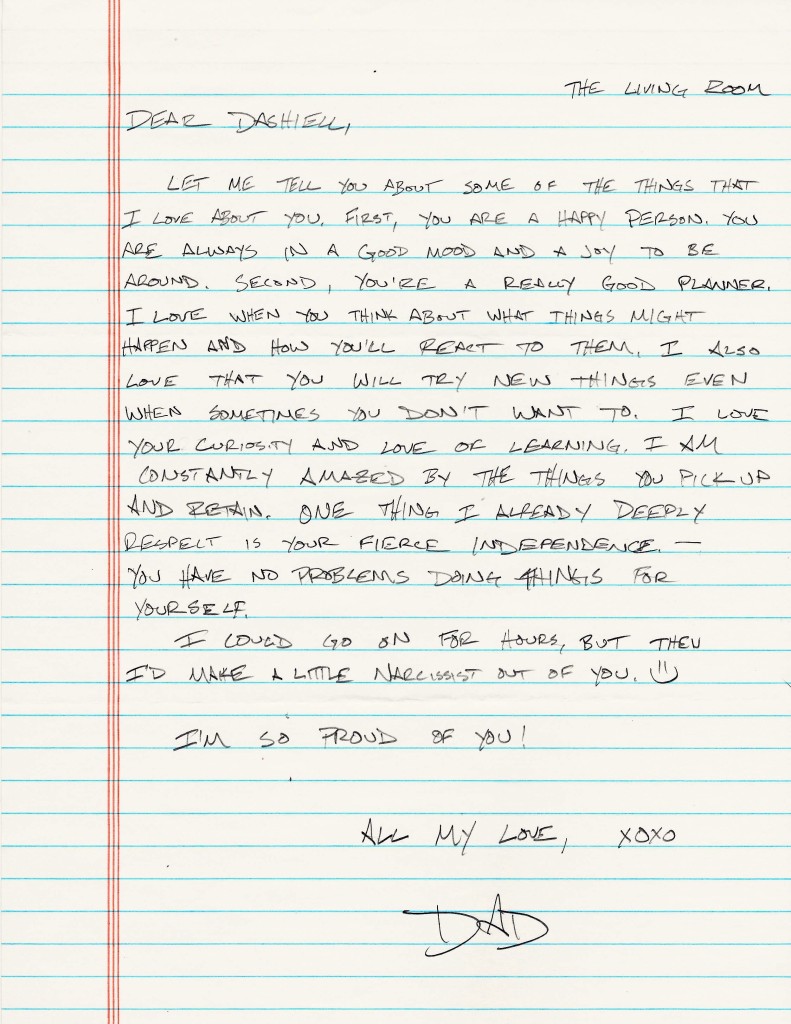 THE LIVING ROOM
DEAR DASHIELL,
LET ME TELL YOU ABOUT SOME OF THE THINGS THAT
I LOVE ABOUT YOU. FIRST, YOU ARE A HAPPY PERSON. YOU
ARE ALWAYS IN A GOOD MOOD AND A JOY TO BE
AROUND. SECOND, YOU'RE A REALLY GOOD PLANNER.
I LOVE WHEN YOU THINK ABOUT WHAT THINGS MIGHT
HAPPEN AND HOW YOU'LL REACT TO THEM. I ALSO
LOVE THAT YOU WILL TRY NEW THINGS EVEN
WHEN SOMETIMES YOU DON'T WANT TO. I LOVE
YOUR CURIOSITY AND LOVE OF LEARNING. I AM
CONSTANTLY AMAZED BY THE THINGS YOU PICK UP
AND RETAIN. ONE THING I ALREADY DEEPLY
RESPECT IS YOUR FIERCE INDEPENDENCE. —
YOU HAVE NO PROBLEMS DOING THINGS FOR
YOURSELF.
I COULD GO ON FOR HOURS, BUT THEN
I'D MAKE A LITTLE NARCISSIST OUT OF YOU. :)
I'M SO PROUD OF YOU!
ALL MY LOVE, XOXO
DAD